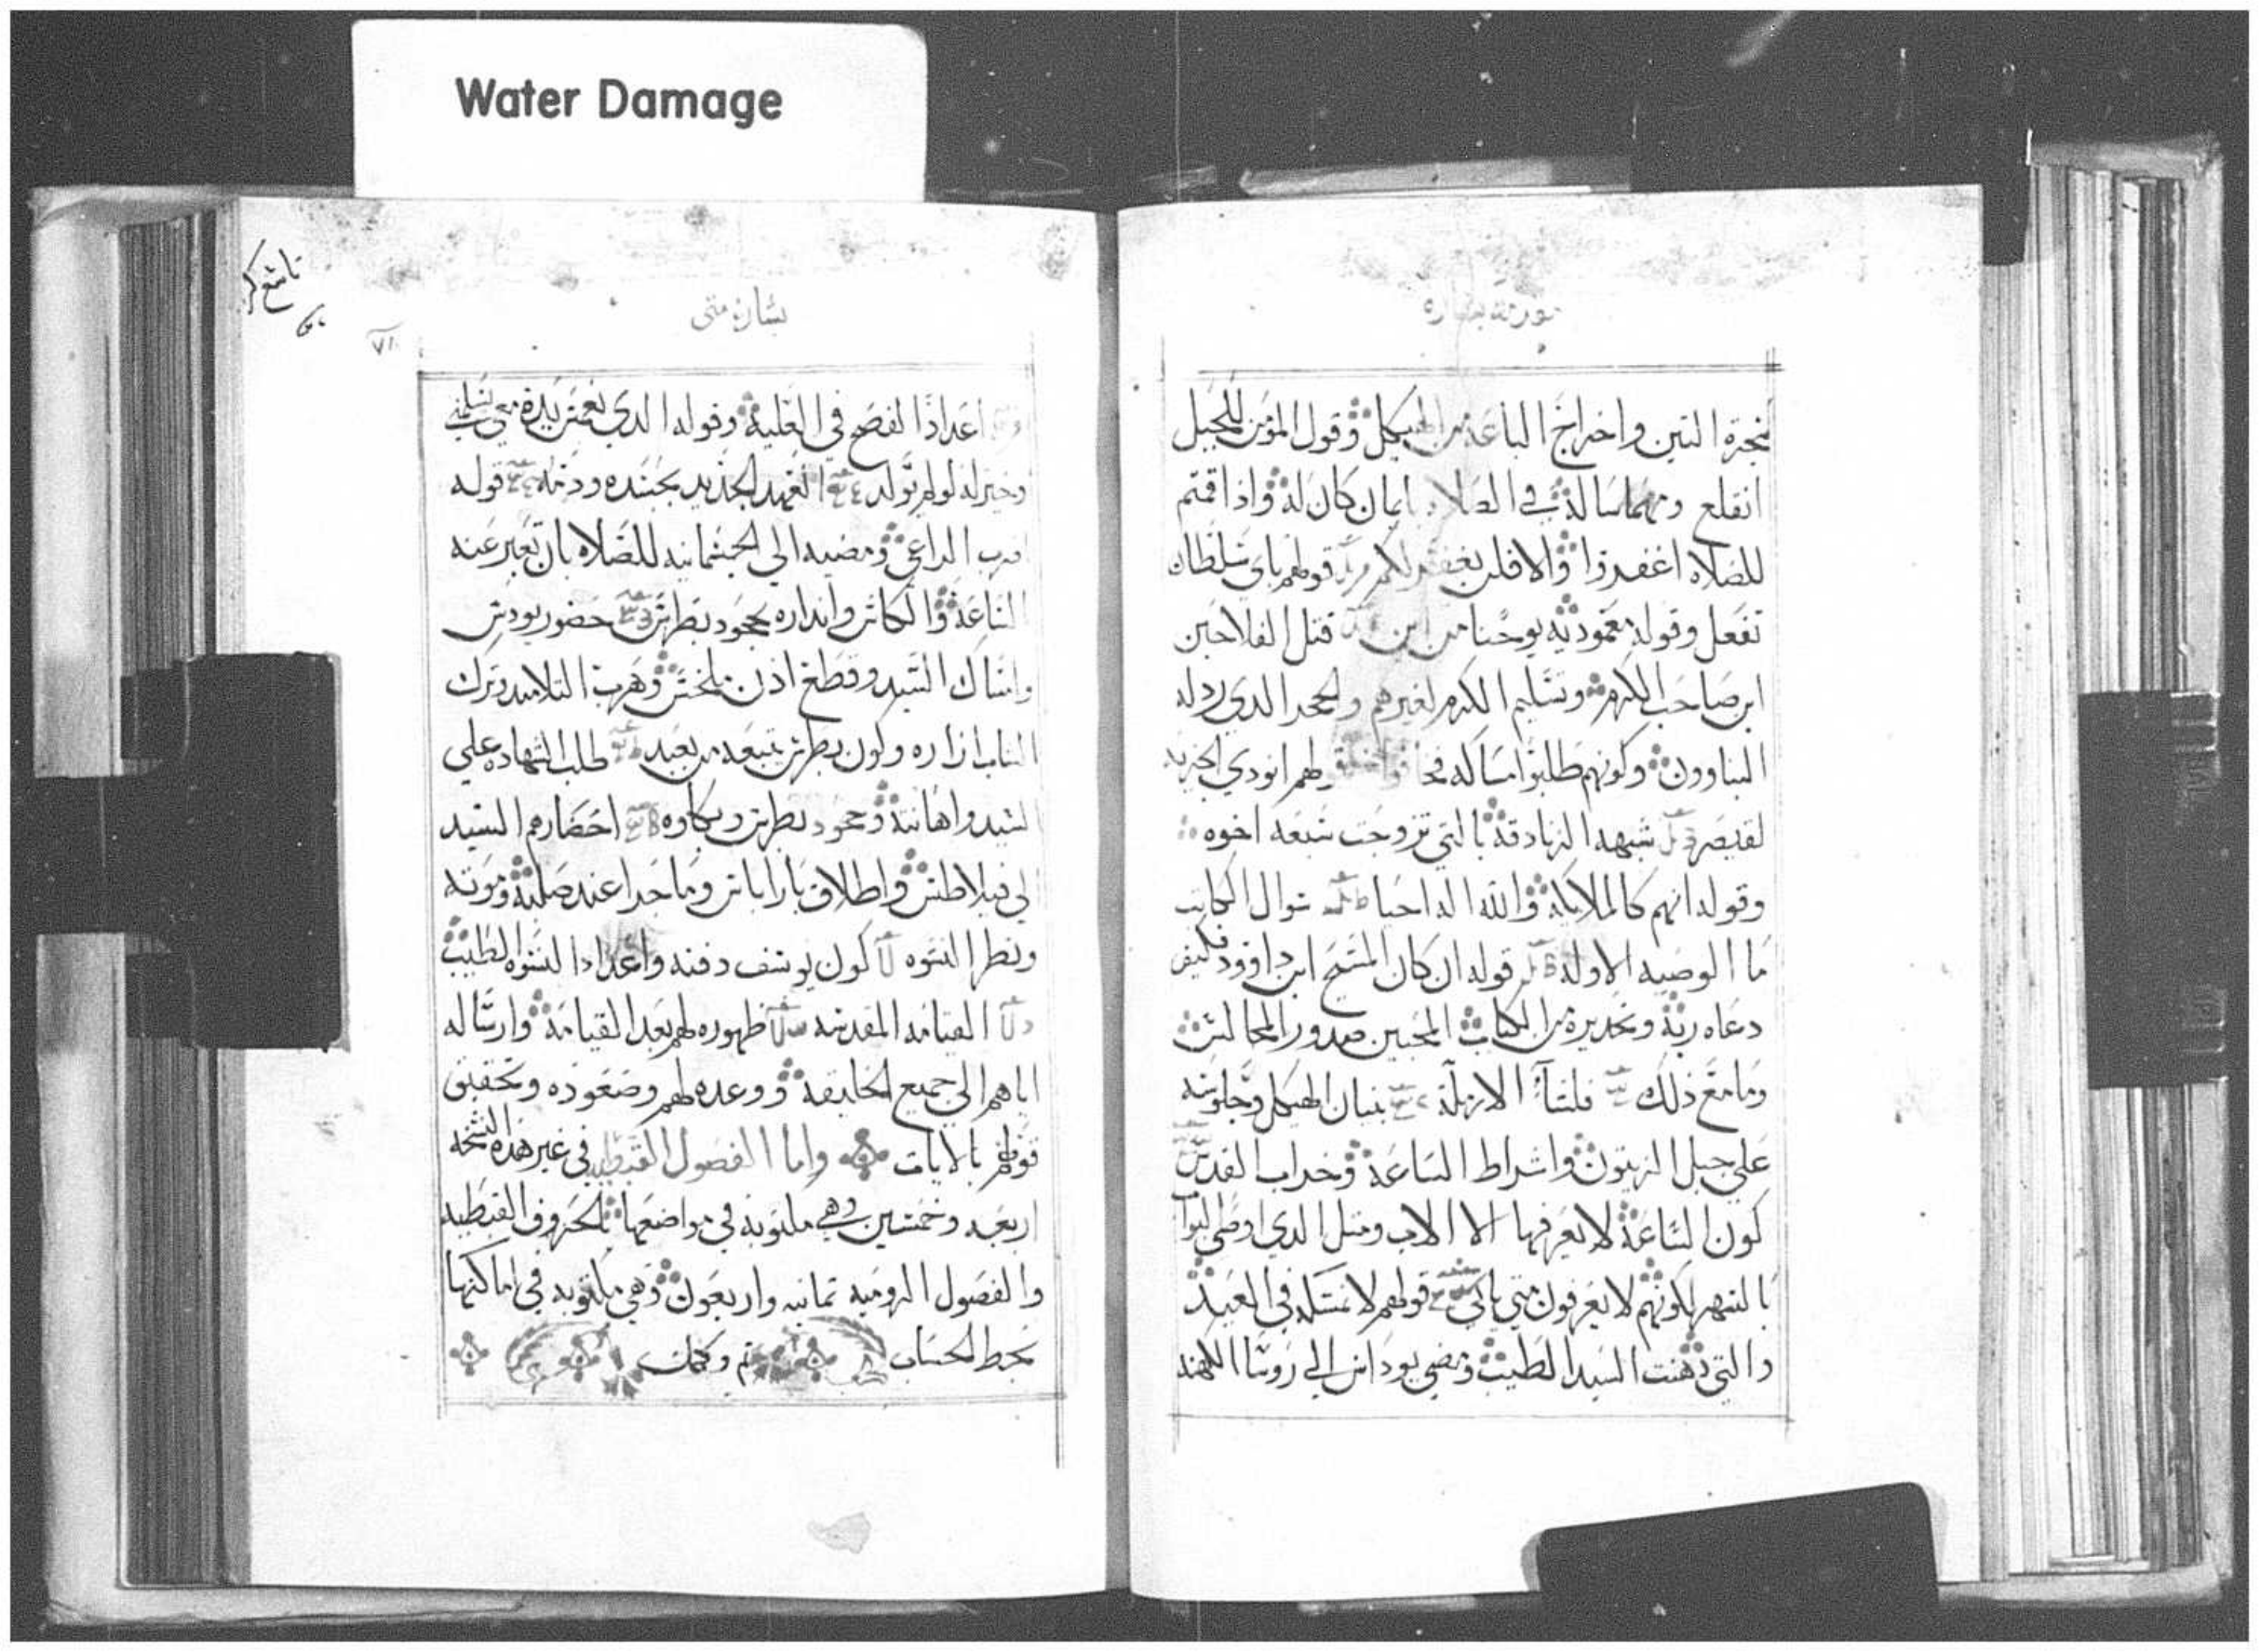 Water Damage
شجرة التين واخراج الباعه من الهيكل وقول المؤمن للجبل
انقلع ومهما ساله في الصلاه بايمان كان له واذا قمتم
للصلاه اغفروا والا فلن يغفر لكم قولهم باي سلطان
تفعل وقوله معموديه يوحنا من اين قتل الفلاحين
ابن صاحب الكرم وتسليم الكرم لغيرهم والحجر الدي رذله
البناوون وكونهم طلبوا مساكه فخافوا لهم انودي الجزيه
لقيصر شبهه الزنادقه بالتي تزوجت سبعه اخوه
وقوله انهم كالملايكه والله اله احيا سوال الكاتب
ما الوصيه الاوله قوله ان كان المسيح ابن داوود فكيف
دعاه ربه وتحديره من الكتاب المحبين صدور المجالس
وما مع ذلك فلسا الارمله بنيان الهيكل وجلوسه
علي جبل الزيتون واشراط الساعه وخراب القدس
كون الساعه لا يعرفها الا الاب ومتل الدي اوصي البواب
بالسهر لكونهم لا يعرفون متي ياتي قولهم لا نمسكه في العيد
والتي دهنت السيد الطيب ومضي يوداس الي روسا الكهنه
بشارة متى
٧١
اعداد الفصح في العليه وقوله الدي يغمس يده معي يسلمني
وخير له لو لم يولد العهد الجديد بجسده ودمه قوله
اضرب الراعي ومضيه الي الجسمانيه للصلاه بان تعبر عنه
الساعه والكاس وانداره بجحود بطرس حضور يودس
وامساك السيد وقطع اذن ملخس وهرب التلاميد وترك
الشاب ازاره وكون بطرس تبعه من بعيد طلب الشهاده علي
السيد واهانته وجحود بطرس وبكاوه احضارهم السيد
الي فيلاطس واطلاق باراباس وما جرا عند صلبه وموته
ونظر النسوه كون يوسف دفنه واعداد النسوه الطيب
القيامه المقدسه ظهوره لهم بعد القيامه وارساله
اياهم الي جميع الخليقه ووعده لهم وصعوده وتحقيق
قولهم بالايات واما الفصول القبطيه في غير هده النسخه
اربعه وخمسين وهي مكتوبه في مواضعها بالحروف القبطيه
والفصول الروميه تمانيه واربعون وهي مكتوبه في اماكنها
بخط الحساب تم وكمل